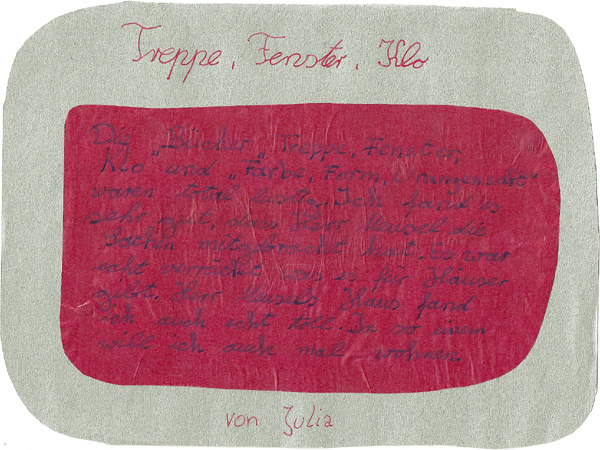 Treppe, Fenster, Klo
Die „Bücher" „Treppe, Fenster,
Klo" und „Farbe, Form,
waren total lustig. Ich fand es
sehr gut, dass Herr Meusel die
Sachen mitgebracht hat. Es war
echt verrückt was es für Häuser
gibt. Herr Meusels Haus fand
ich auch echt toll. In so einem
will ich auch mal wohnen.
von Julia